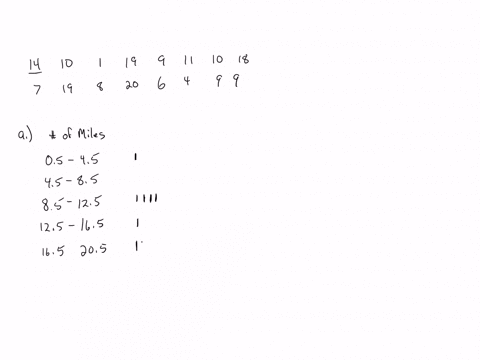 14 10 1 19 9 11 10 18
7 19 8 20 6 4 9 9
a.) # of Miles
0.5 - 4.5 I
4.5 - 8.5
8.5 - 12.5 IIII
12.5 - 16.5 I
16.5 20.5 II